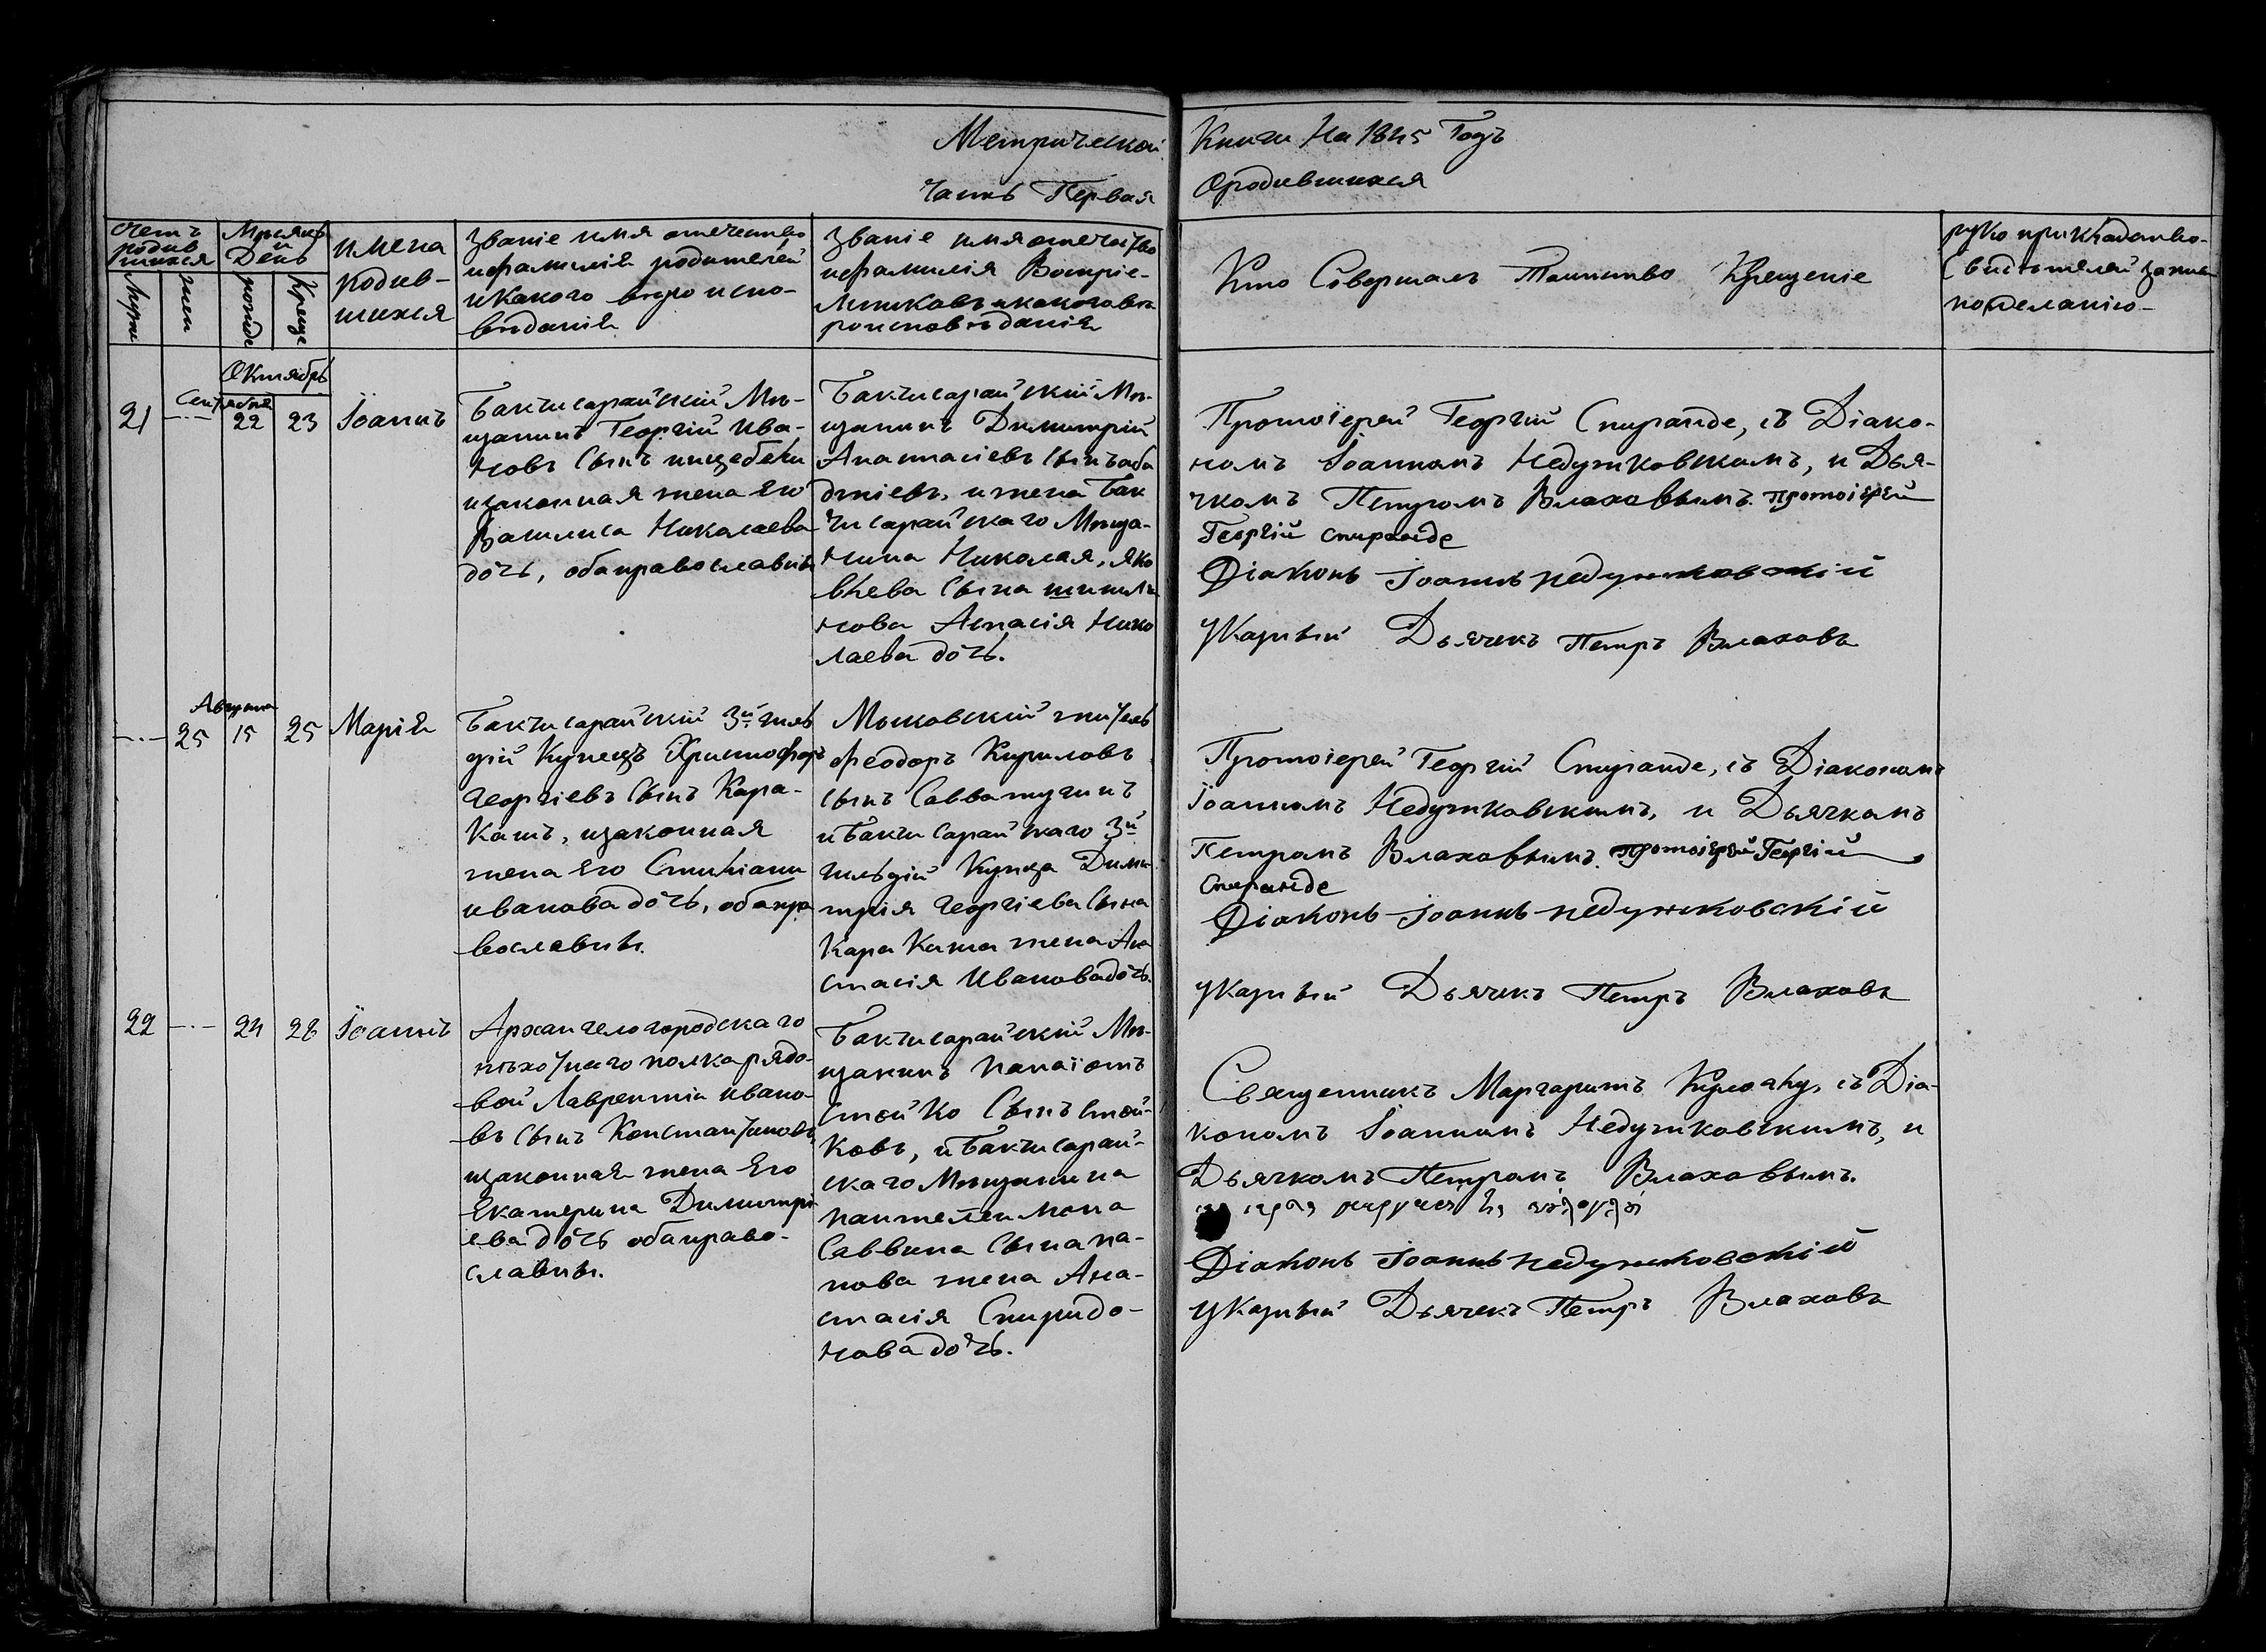 Метрической Книги На 1845 Годъ
Часть Первая Ородившихся
Счетъ родив шихся
Мужи
жен
Мѣсяцъ и День
рожде
Креще
имена родив-
шихся
Званіе имя отечество
ифамилія родителей
иКакого вѣро испо-
веданія
Званіе имяотечество
ифамилія Воспріе-
мниковъ икакоговѣ-
роисповѣданія
Кто Совершалъ Таинство Крещеніе
руко прикладство-
Свидѣтелей запис
пожеланію-
Октябрь
Сентября
21 22 23 Іоаннъ
Бахчисарайскій Мѣ-
щанинъ Георгій Ива-
новъ Сынъ
изаконная жена Его
Василиса Николаева
дочь, обаправославны
Бахчисарайскій Мѣ-
щанинъ Димитрій
Анастасіевъ Сынъ Аба
джіевъ, ижена Бах
чисарайскаго Мѣща-
нина Николая, Яко
влева Сына
нова Аспасія Нико
лаева дочь.
Протоіерей Георгій Спиранде, съ Діако-
номъ Іоанномъ Недзужковскимъ, и Дья-
чкомъ Петромъ Влаховымъ. протоіерей
Георгій Спиранде
Діаконъ Іоаннъ
Указный Дьячекъ Петръ Влаховъ
Августа
25 15 25 Марія
Бахчисарайскій 3й гиль
дій Купецъ Христофоръ
Георгіевъ Сынъ Кара-
Кашъ, изаконная
жена Его
иванова дочь, обапра
вославны.
Московскій житель
Феодоръ Кириловъ
Сынъ
иБахчисарайскаго 3й
гильдій Купца Дими
трія Георгіева Сына
Кара Каша жена Ана
стасія Ивановадочь.
Протоіерей Георгій Спиранде, съ Діакономъ
Іоанномъ и Дьячкомъ
Петромъ Влаховымъ. протоіерей Георгій
Спиранде
Діаконъ Іоаннъ
Указный Дьячекъ Петръ Влаховъ
22 24 28 Іоаннъ
Архангелогородскаго
пѣхотнаго полка рядо-
вой Лаврентій ивано-
въ Сынъ Константиновъ
изаконная жена Его
Екатерина Димитрі
ева дочь обаправо-
славны.
Бахчисарайскій Мѣ-
щанинъ Панаіотъ
Стойко Сынъ Стой-
Ковъ, иБахчисарай-
скаго Мѣщанина
Пантелеимона
Саввина Сына па-
пова жена Ана-
стасія Спиридо-
нова дочь.
Священникъ Маргаритъ съ Діа-
кономъ Іоанномъ и
Дьячкомъ Петромъ Влаховымъ.
Діаконъ Іоаннъ
Указный Дьячекъ Петръ Влаховъ